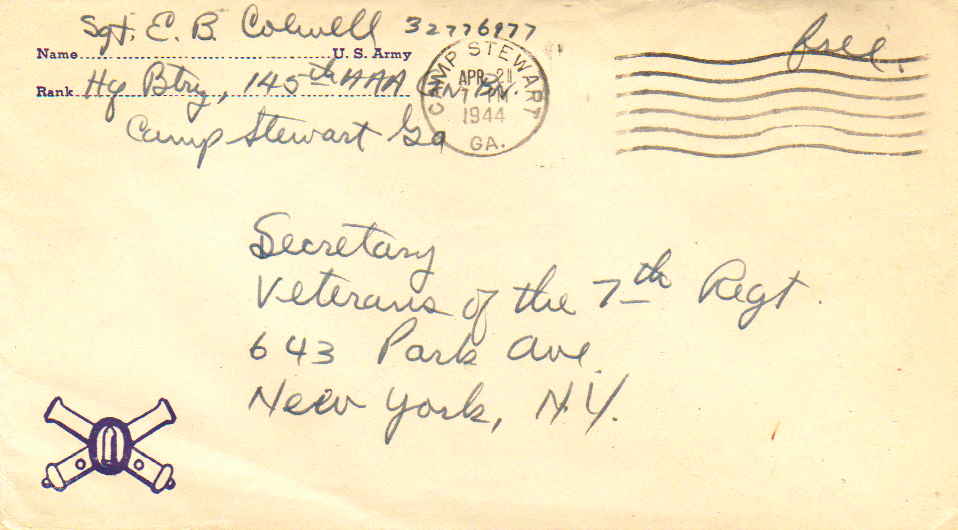 Sgt. E. B. Colwell 32776977
Name U. S. Army
Rank Hq Btry, 145th AAA Gn. Bn.
Camp Stewart Ga
free.
CAMP STEWART
APR 21
7 PM
1944
GA.
Secretary
Veterans of the 7th Regt.
643 Park Ave.
New York, N.Y.